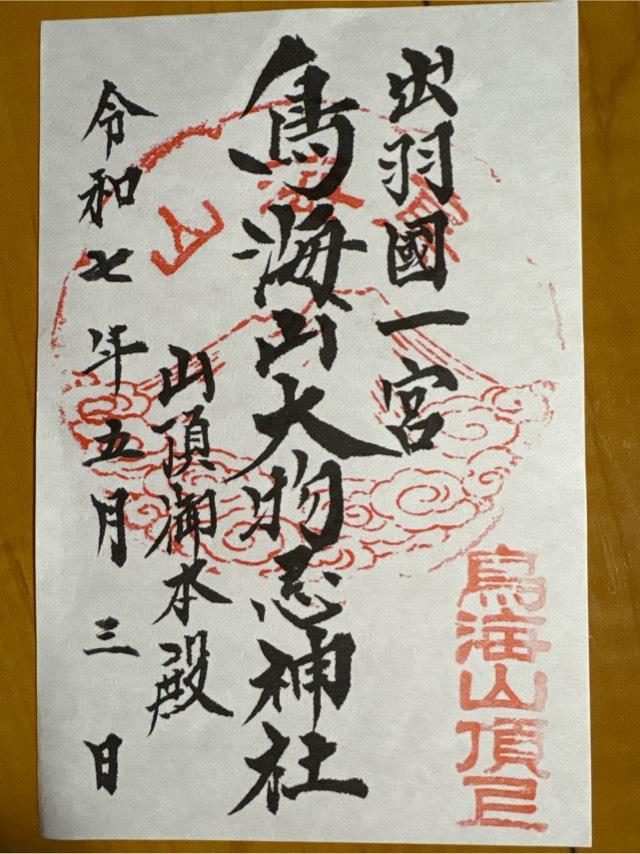 出羽國一宮
鳥海山大物忌神社
山頂御本殿
令和七年五月三日
鳥海山頂